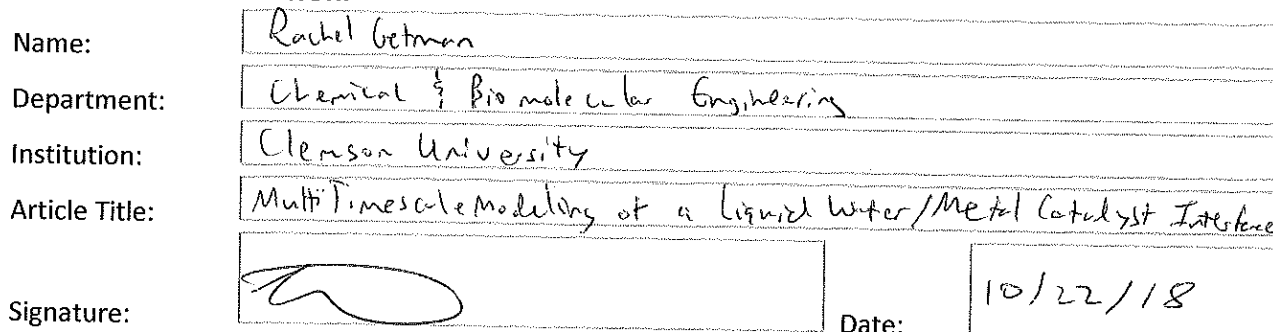 Name: Rachel Getman
Department: Chemical & Biomolecular Engineering
Institution: Clemson University
Article Title: MultiTimescale Modeling of a Liquid Water/Metal Catalyst Interface
Signature: Date: 10/22/18